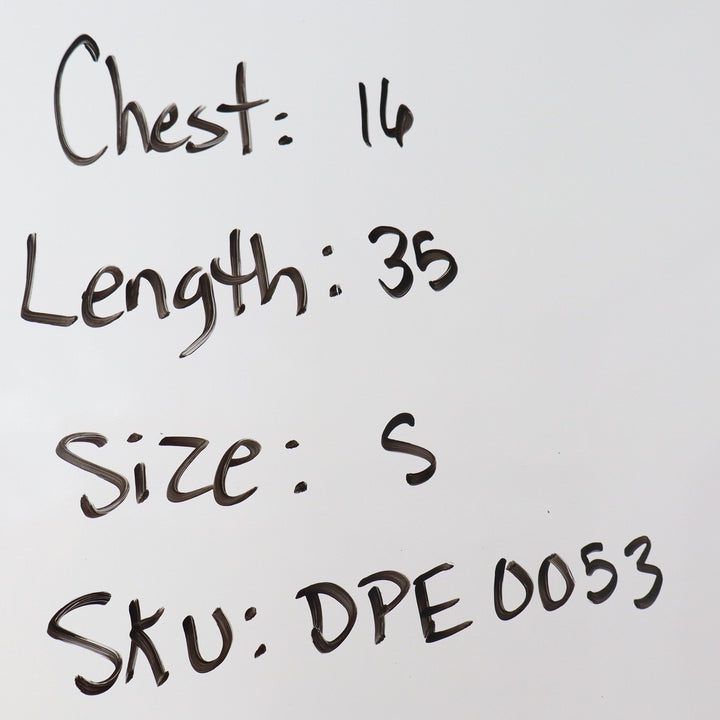 Chest: 16
Length: 35
Size: S
SKU: DPE 0053